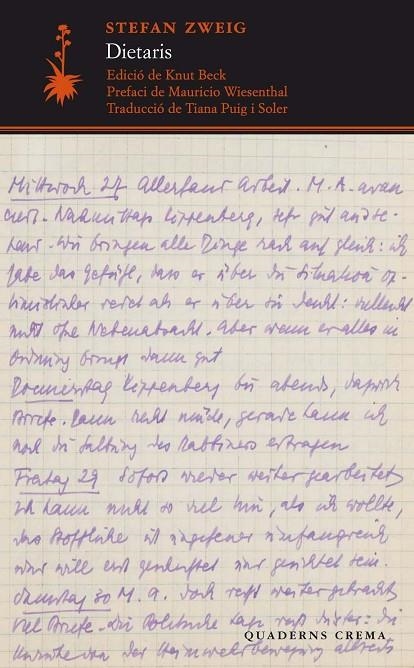 STEFAN ZWEIG
Dietaris
Edició de Knut Beck
Prefaci de Mauricio Wiesenthal
Traducció de Tiana Puig i Soler
Mittwoch 27 Allerhand Arbeit. M. A. avan
ciert. Nachmittags Kippenberg, sehr gut
Wir bringen alle Dinge rasch auf gleich: ich
habe das Gefühl, dass er über die Situation op-
timistischer redet als er über sie denkt: vielleicht
nicht ohne Nebenabsicht. Aber wenn er alles in
Ordnung bringt dann gut
Donnerstag Kippenberg bis abends, dazwisch
Briefe. Dann recht müde, gerade kann ich
noch die des Rabbiners ertragen
Freitag 29 Sofort wieder weiter gearbeitet
Ich kann nicht so viel tun, als ich wollte,
das Stoffliche ist ungeheuer umfangreich
und will erst und gesichtet sein.
Samstag 30 M. A. doch weiter gebracht
Viel Briefe. Die Politische Lage düster: die
der Heimwehrbewegung
QUADERNS CREMA